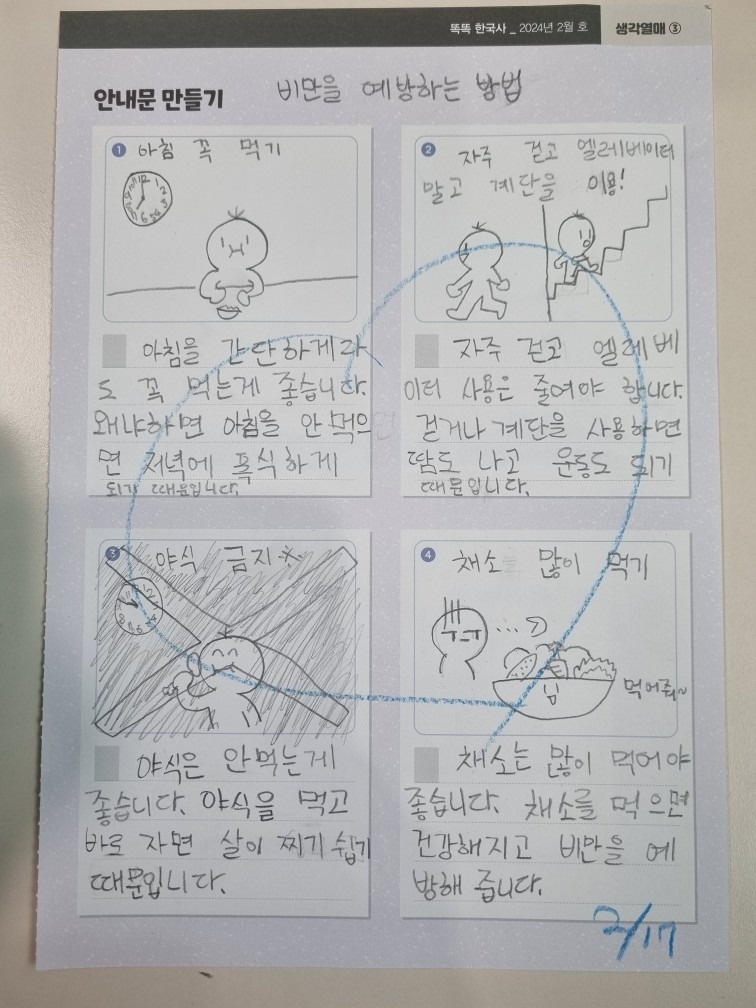 똑똑 한국사 _ 2024년 2월 호 생각열매 ③
안내문 만들기 비만을 예방하는 방법
① 아침 꼭 먹기
아침을 간단하게라
도 꼭 먹는게 좋습니다.
왜냐하면 아침을 안 먹으
면 저녁에 폭식하게
되기 때문입니다.
② 자주 걷고 엘레베이터
말고 계단을 이용!
자주 걷고 엘레베
이터 사용은 줄여야 합니다.
걷거나 계단을 사용하면
땀도 나고 운동도 되기
때문입니다.
③ 야식 금지※
야식은 안먹는게
좋습니다. 야식을 먹고
바로 자면 살이 찌기 쉽기
때문입니다.
④ 채소 많이 먹기
먹어줘~
채소는 많이 먹어야
좋습니다. 채소를 먹으면
건강해지고 비만을 예
방해 줍니다.
2/17